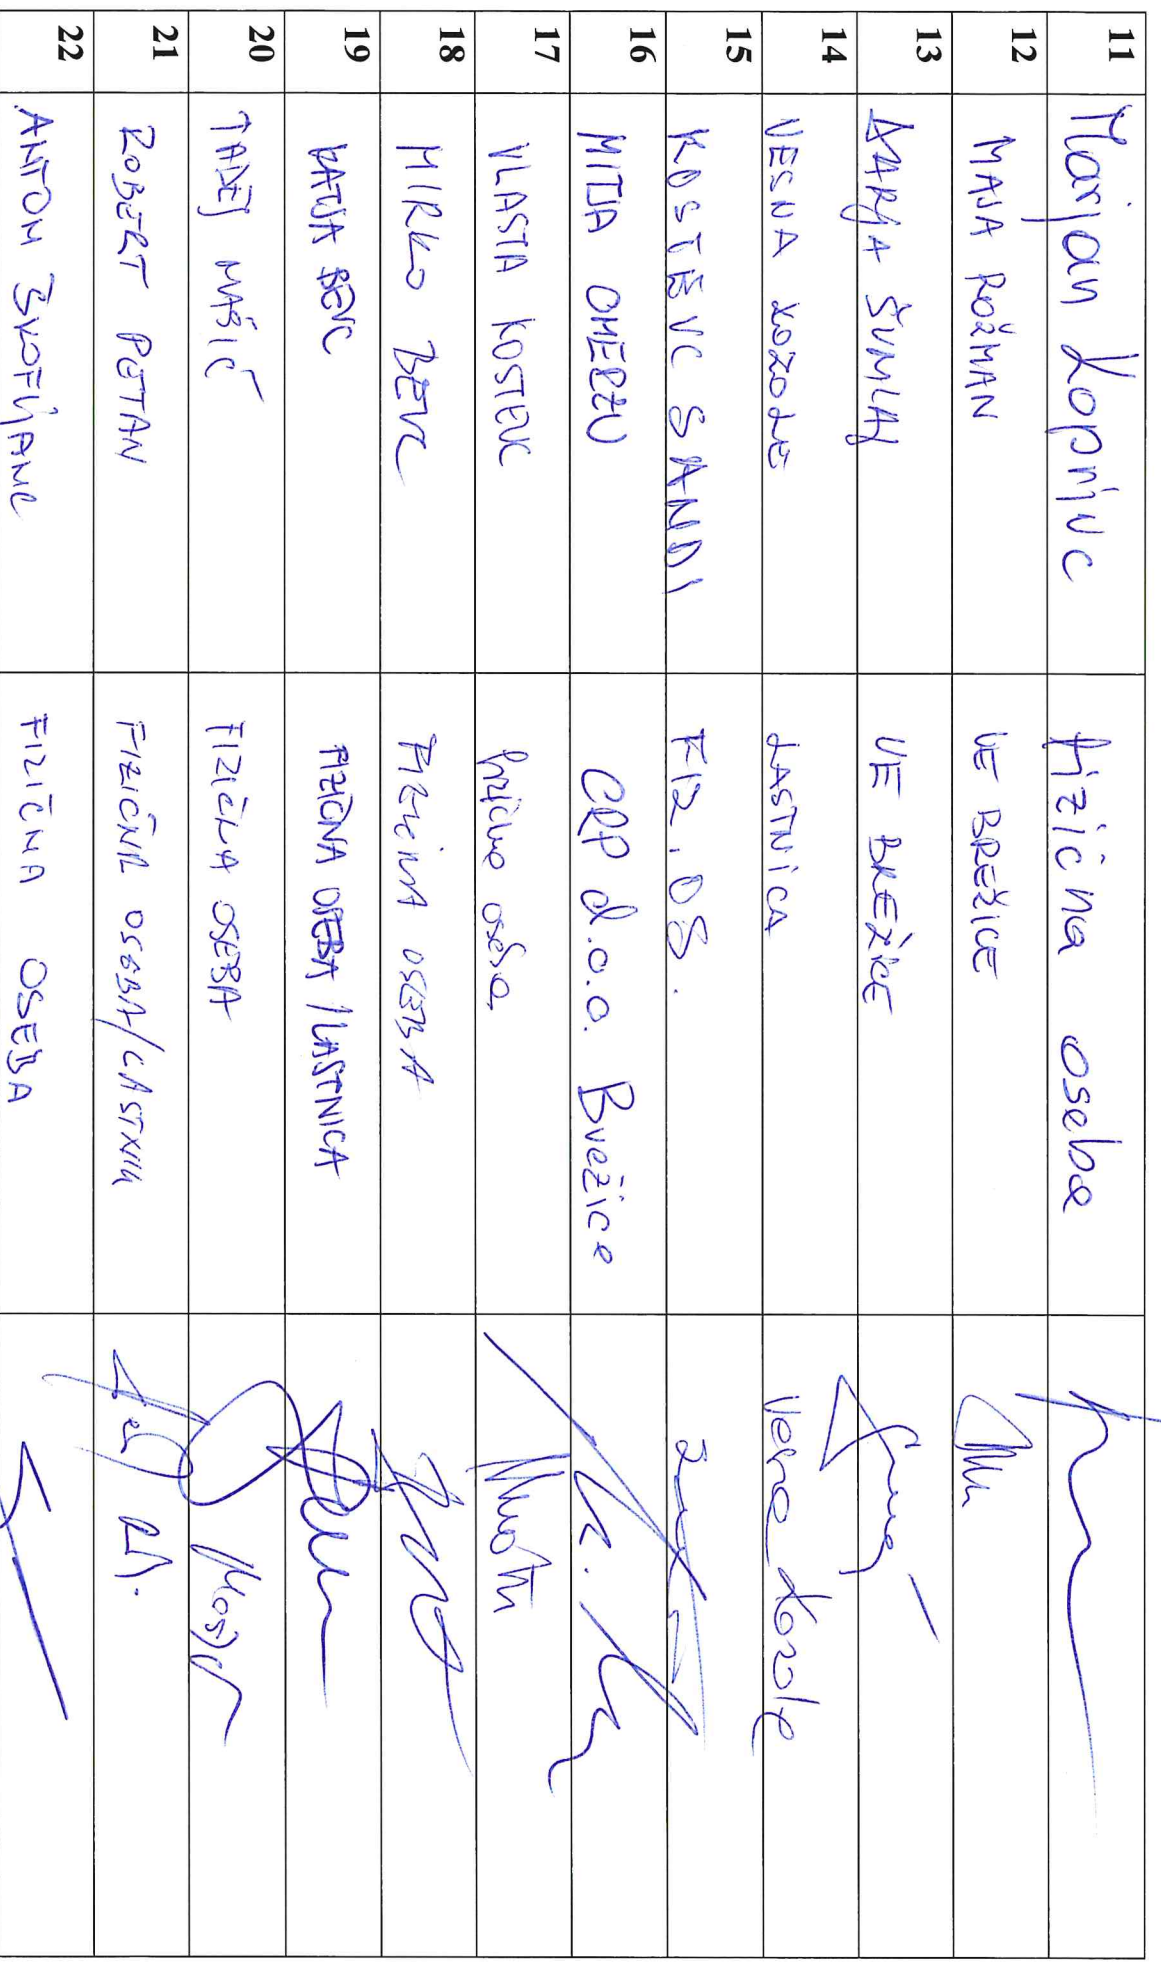 11 Marjan Koprivc fizična oseba
12 MAJA ROŽMAN UE BREŽICE
13 DARJA ŠUMLAJ UE BREŽICE
14 VESNA KOZOLE LASTNICA Vesna Kozole
15 KOSTEVC SANDI FIZ. OS.
16 MITJA OMERZU CRP d.o.o. Brežice
17 VLASTA KOSTEVC fizična oseba
18 MIRKO BEVC FIZIČNA OSEBA
19 KATJA BEVC FIZIČNA OSEBA / LASTNICA
20 TADEJ MAŠIČ FIZIČNA OSEBA
21 ROBERT PETTAN FIZIČNA OSEBA/LASTNIK
22 ANTON ŠKOFLJANC FIZIČNA OSEBA